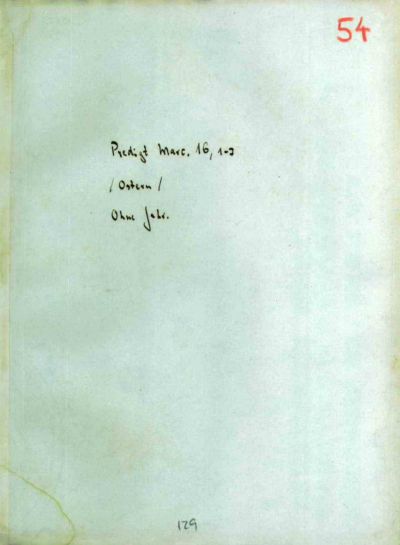 54
Predigt Marc. 16, 1-7
/Ostern/
Ohne Jahr.
129